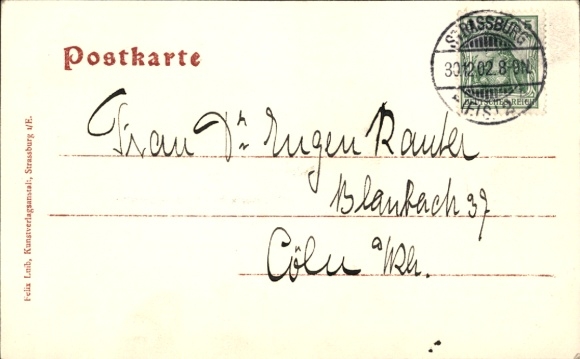 Postkarte
STRASSBURG
30.12.02.8-9N.
DEUTSCHES REICH
Frau Dr. Eugen Rauter
Blaubach 37
Cöln a/Rh.
Felix Luib, Kunstverlagsanstalt, Strassburg i/E.